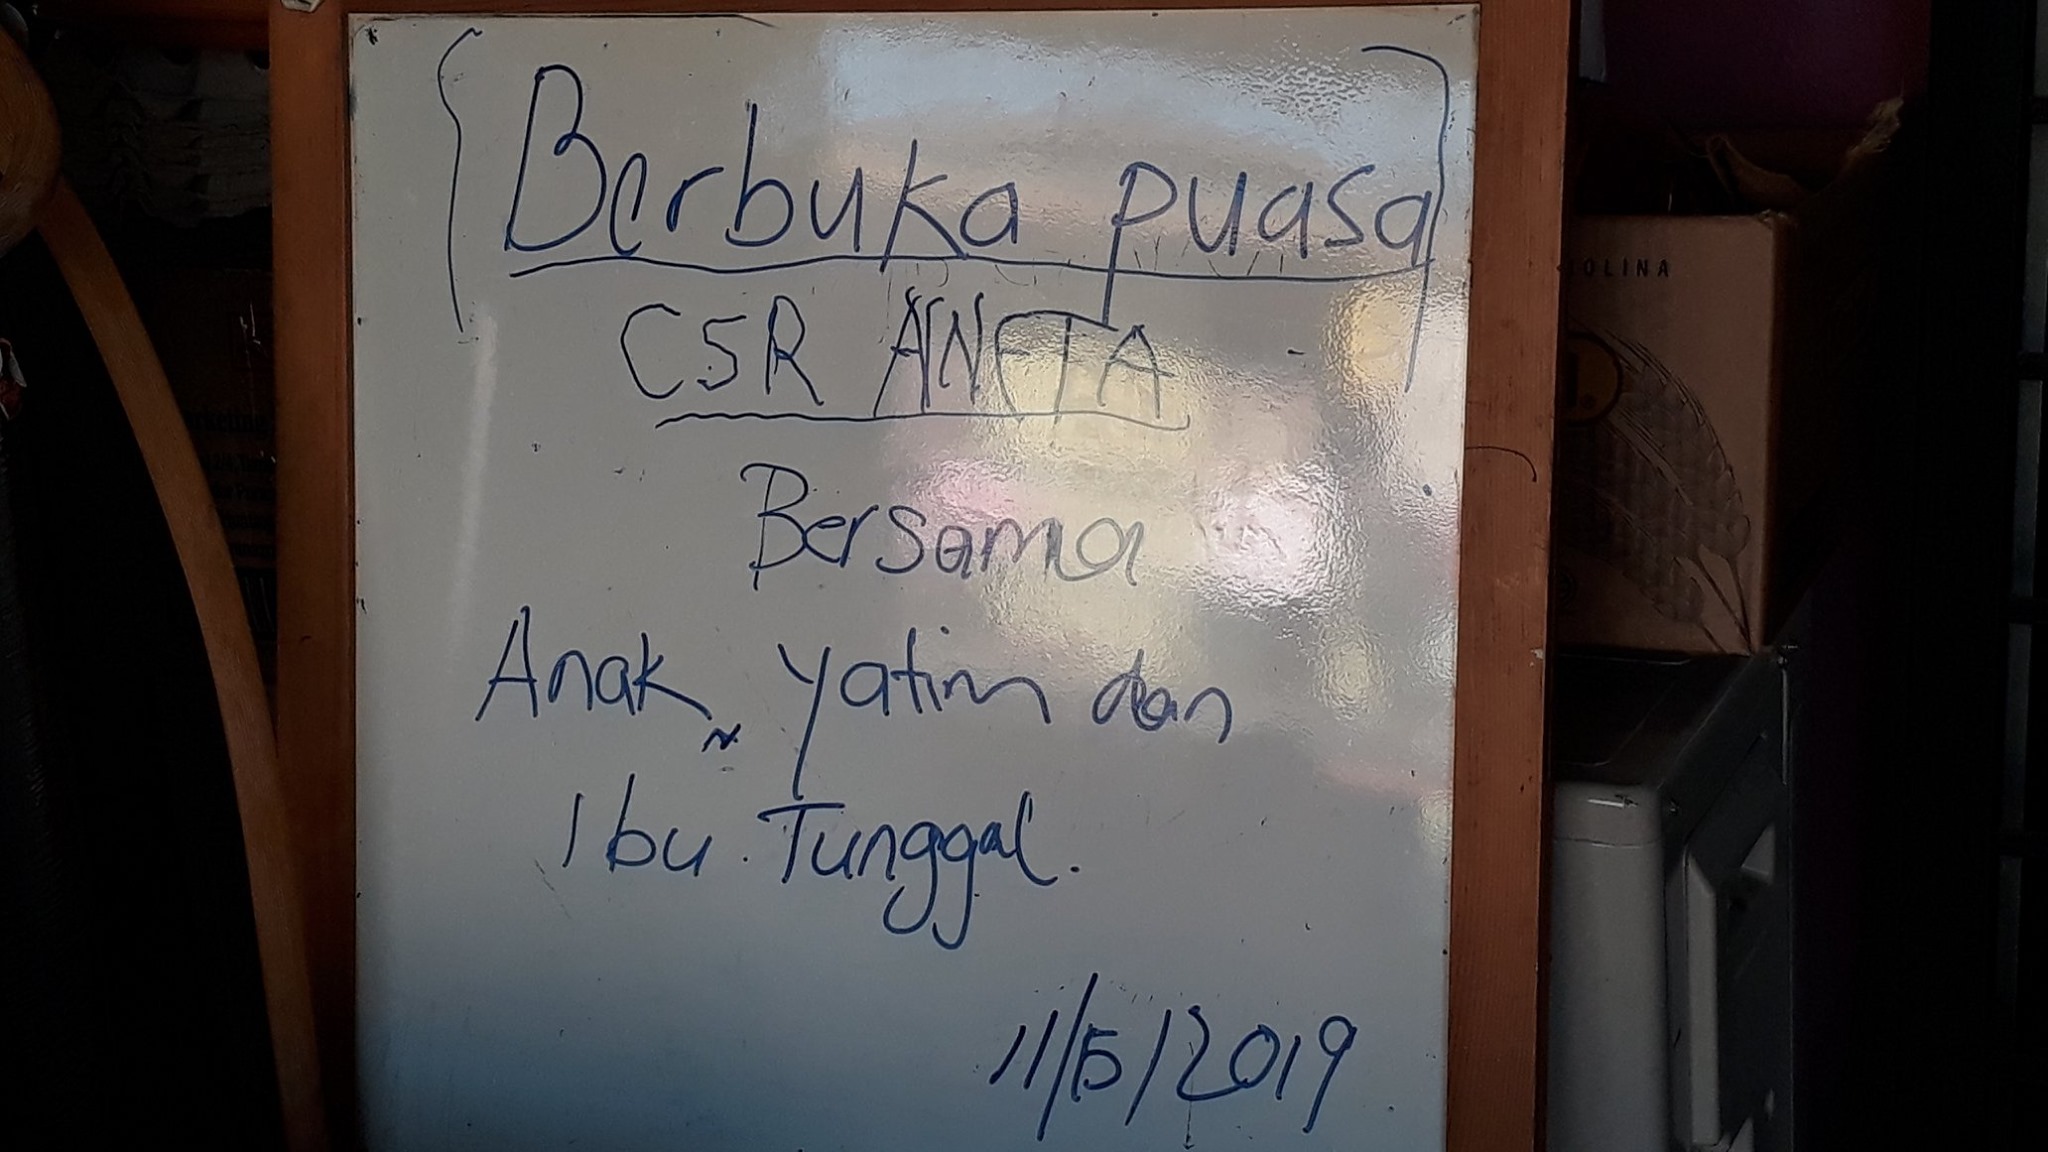 Berbuka puasa
CSR ANETA
Bersama
Anak yatim dan
Ibu Tunggal.
11/5/2019
OLINA